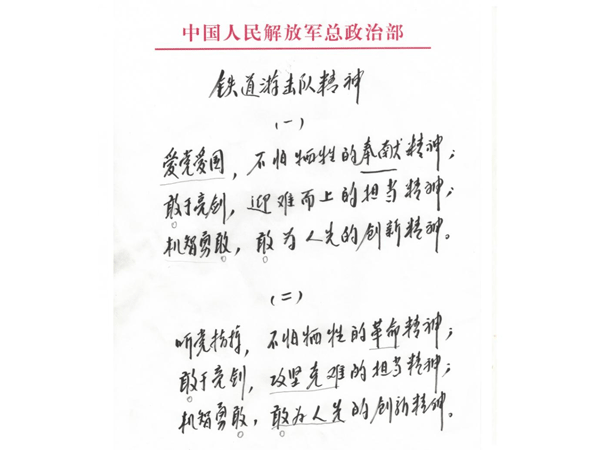 中国人民解放军总政治部
铁道游击队精神
(一)
爱党爱国，不怕牺牲的奉献精神；
敢于亮剑，迎难而上的担当精神；
机智勇敢，敢为人先的创新精神。
(二)
听党指挥，不怕牺牲的革命精神；
敢于亮剑，攻坚克难的担当精神；
机智勇敢，敢为人先的创新精神。